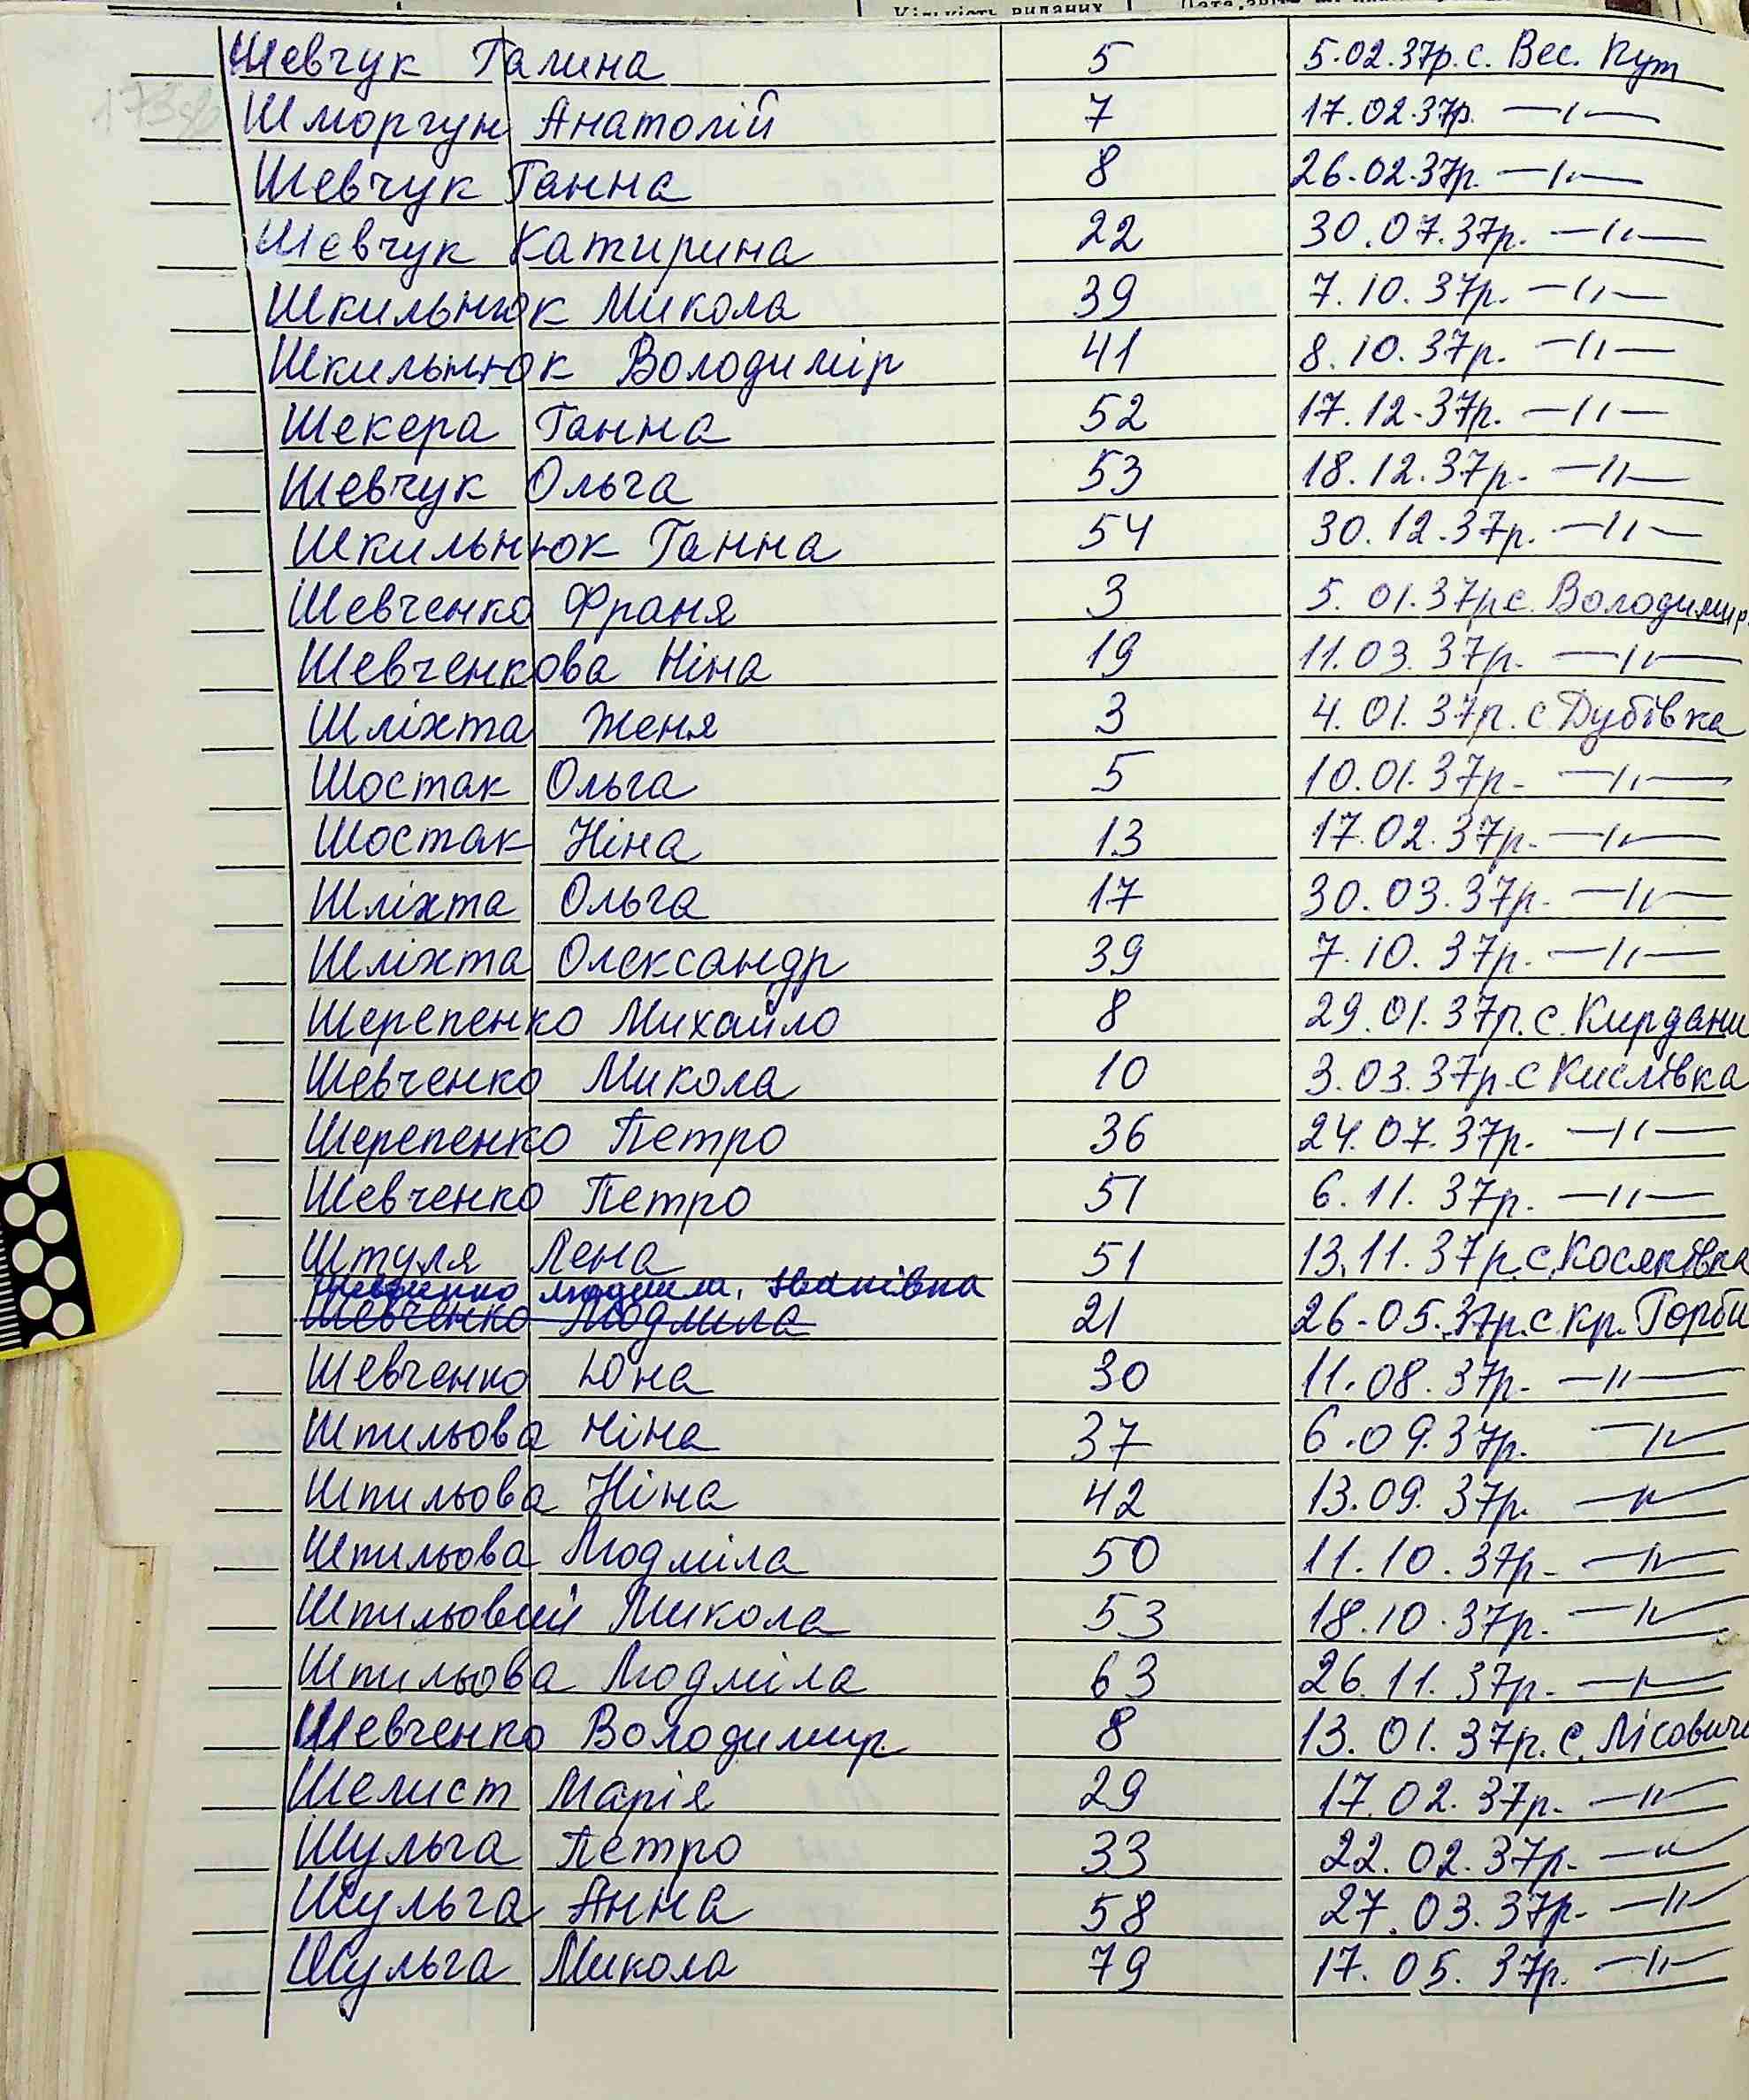 Кількість виданих
Шевчук Галина 5 5.02.37р. с. Вес. Кут
Шморгун Анатолій 7 17.02.37р. —"—
Шевчук Ганна 8 26.02.37р. —"—
Шевчук Катирина 22 30.07.37р. —"—
Шкильнюк Микола 39 7.10.37р. —"—
Шкильнюк Володимір 41 8.10.37р. —"—
Шекера Ганна 52 17.12.37р. —"—
Шевчук Ольга 53 18.12.37р. —"—
Шкильнюк Ганна 54 30.12.37р. —"—
Шевченко Франя 3 5.01.37р с. Володимир.
Шевченкова Ніна 19 11.03.37р. —"—
Шліхта Женя 3 4.01.37р. с Дубівка
Шостак Ольга 5 10.01.37р. —"—
Шостак Ніна 13 17.02.37р. —"—
Шліхта Ольга 17 30.03.37р. —"—
Шліхта Олександр 39 7.10.37р. —"—
Шерепенко Михайло 8 29.01.37р. с. Кирдани
Шевченко Микола 10 3.03.37р. с Кислівка
Шерепенко Петро 36 24.07.37р. —"—
Шевченко Петро 51 6.11.37р. —"—
Штуля Лена 51 13.11.37р. с. Косяківка
Шевченко Людмила, Іванівна
Шевченко Людмила 21 26.05.37р. с. Кр. Горби
Шевченко Юна 30 11.08.37р. —"—
Шпильова Ніна 37 6.09.37р. —"—
Шпильова Ніна 42 13.09.37р. —"—
Шпильова Людміла 50 11.10.37р. —"—
Шпильовий Микола 53 18.10.37р. —"—
Шпильова Людміла 63 26.11.37р. —"—
Шевченко Володимир 8 13.01.37р. с. Лісовичі
Шелист Марія 29 17.02.37р. —"—
Шульга Петро 33 22.02.37р. —"—
Шульга Анна 58 27.03.37р. —"—
Шульга Микола 79 17.05.37р. —"—